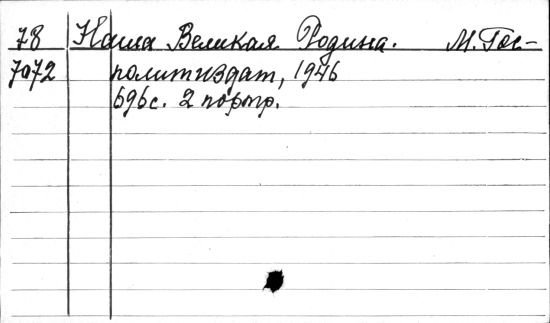 78 Наша Великая Родина. М. Гос-
7072 политиздат, 1946
696с. 2 портр.